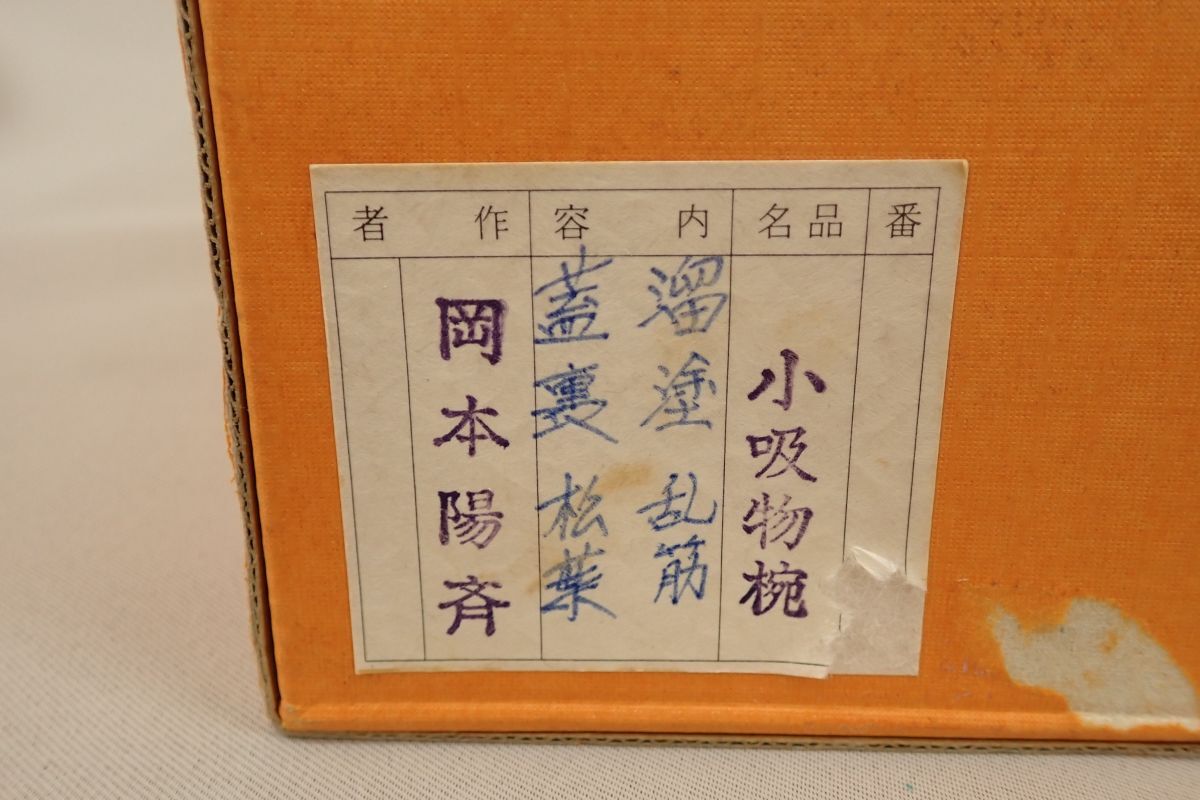 番
品名
内容
作者
小吸物椀
溜塗乱筋
蓋裏松葉
岡本陽斉